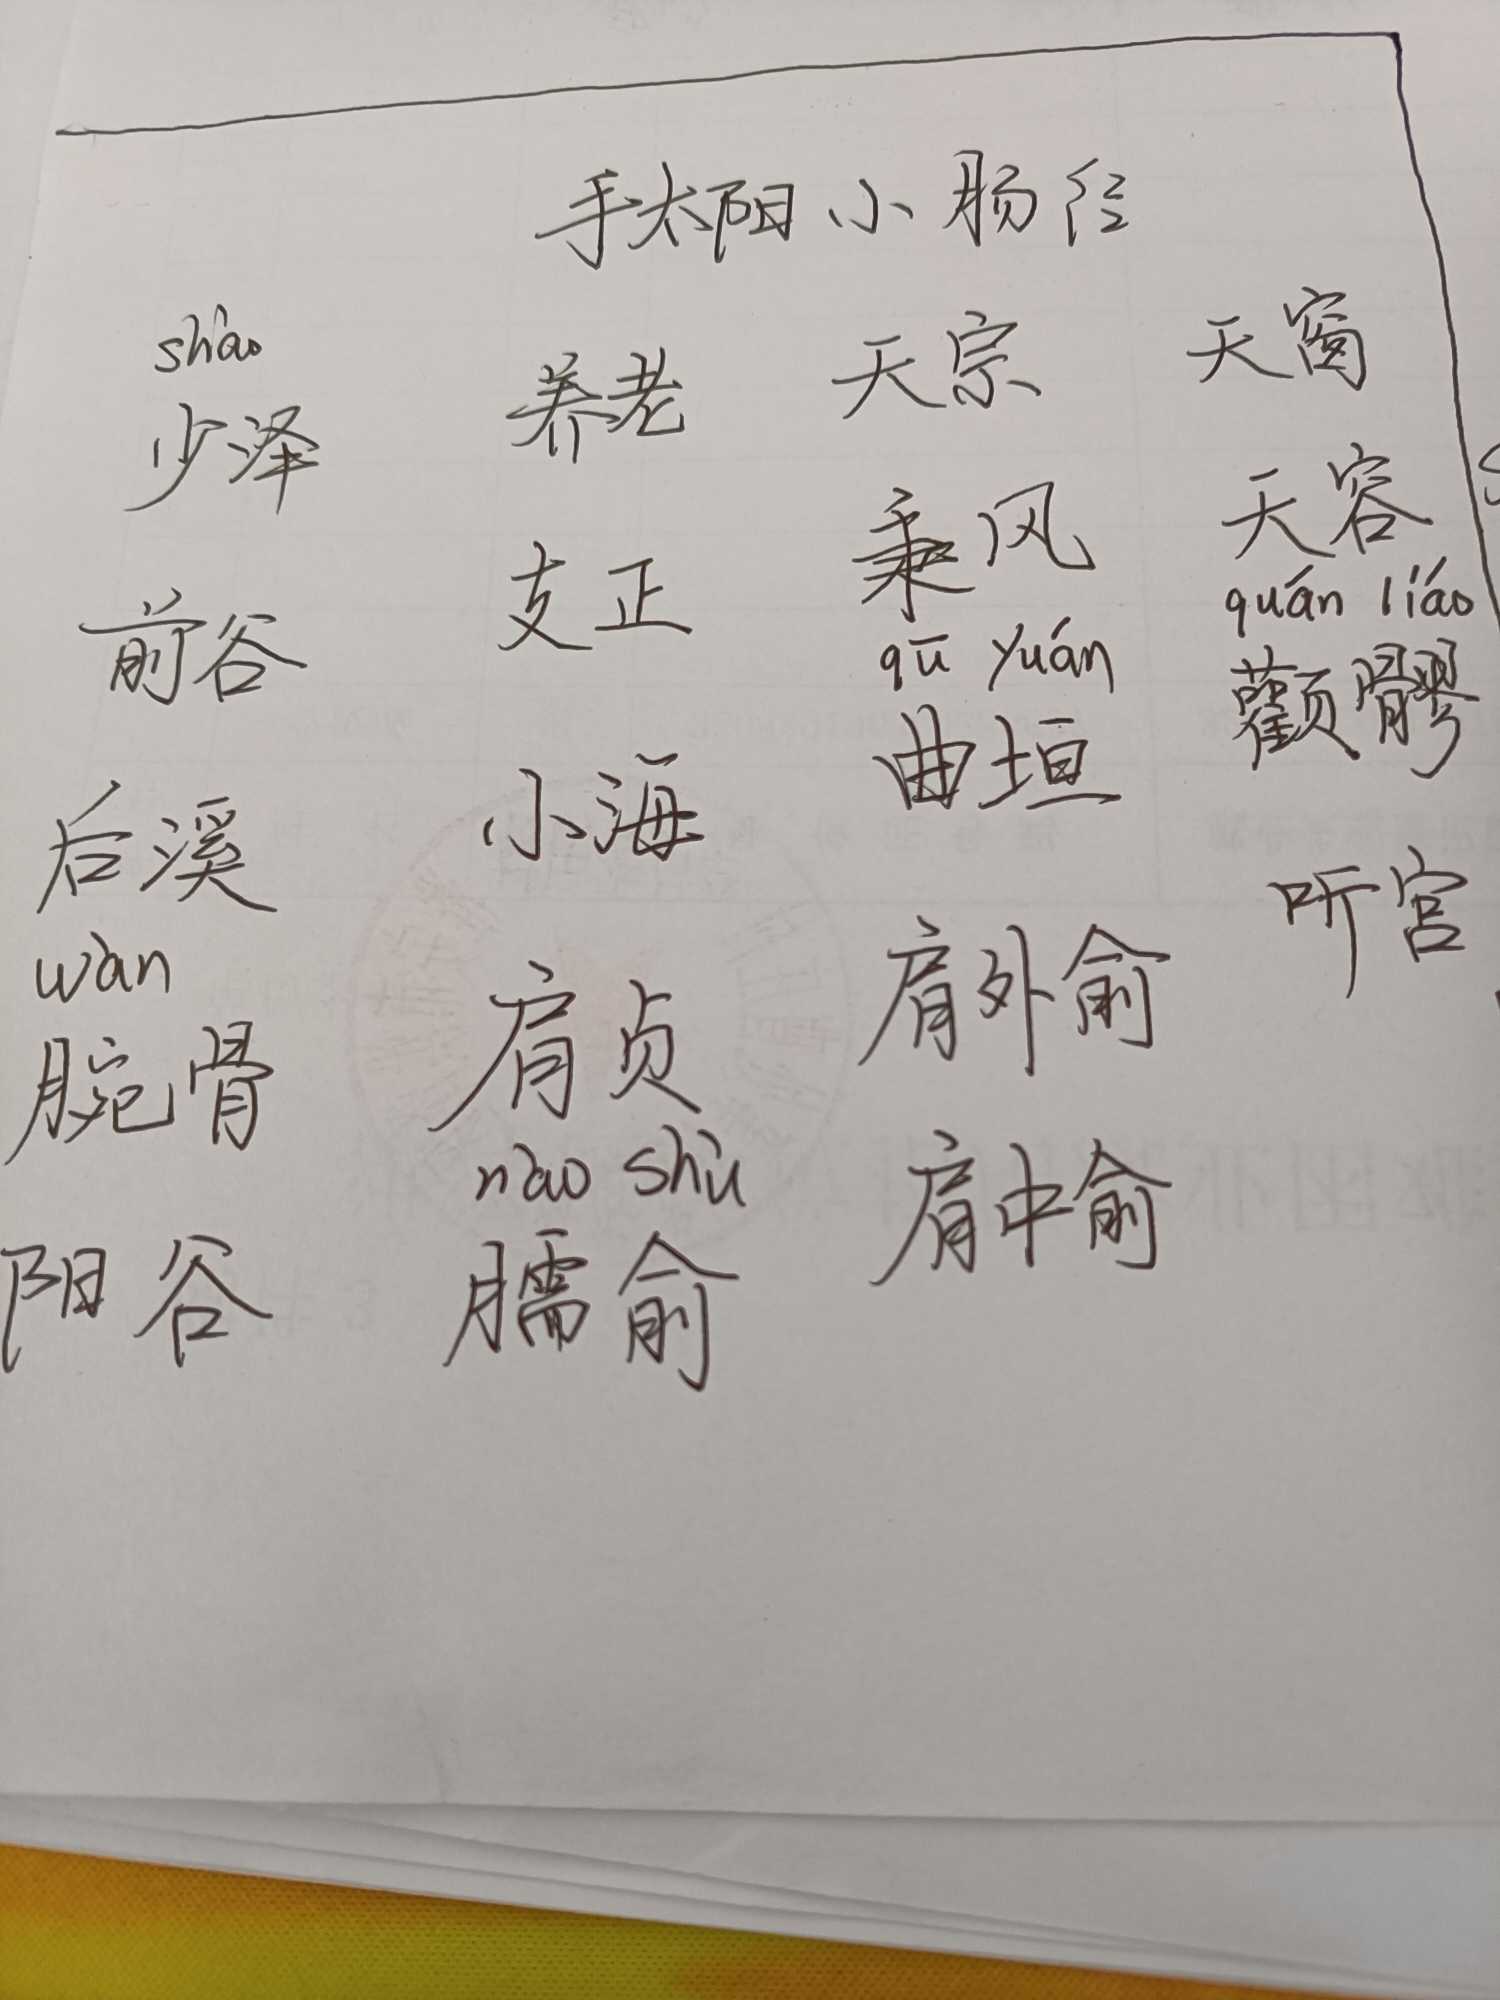 手太阳小肠经
shào
少泽
前谷
后溪
wàn
腕骨
阳谷
养老
支正
小海
肩贞
nào shù
臑俞
天宗
秉风
qū yuán
曲垣
肩外俞
肩中俞
天窗
天容
quán liáo
颧髎
听宫